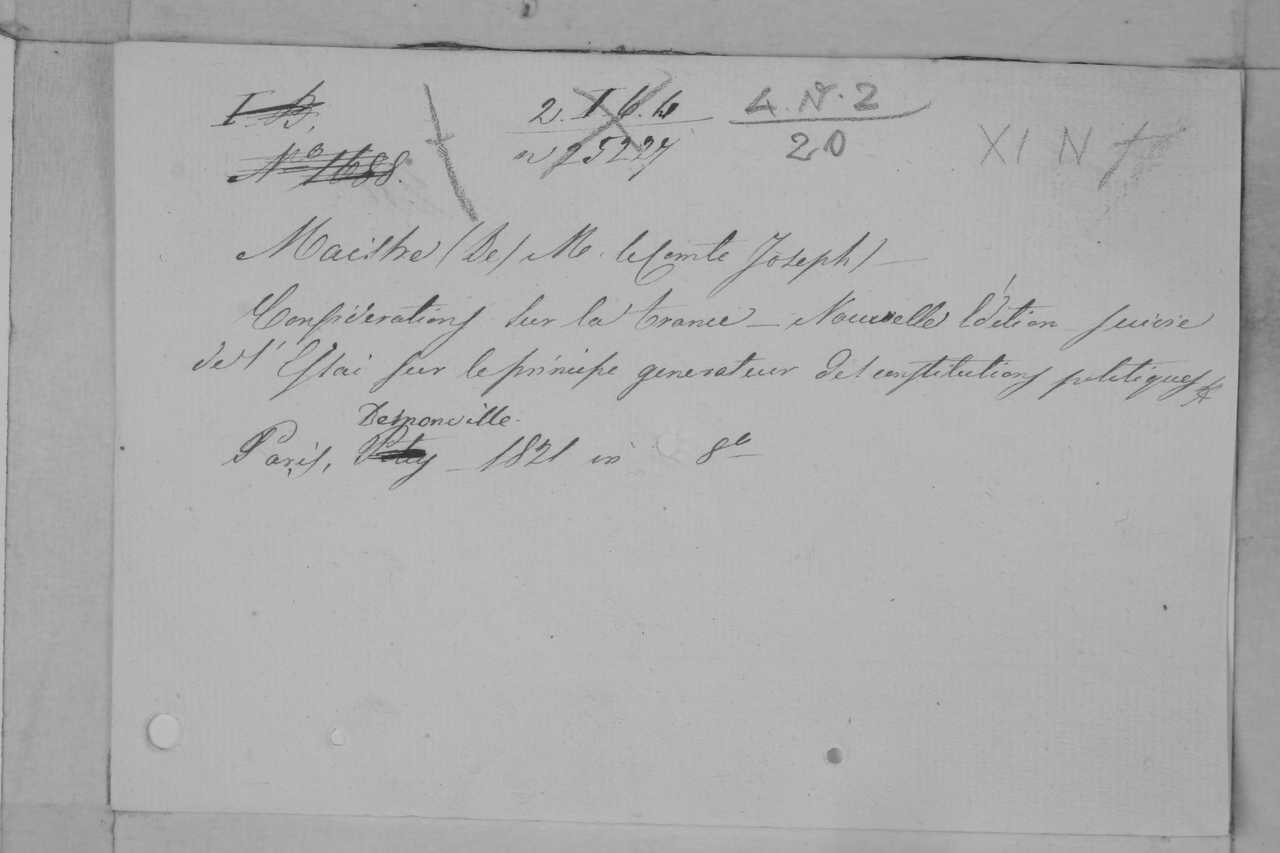 I. B.
2. I. 6. 4
4. N. 2
N° 1688.
n 25227
20
XI N
Maistre (De) M. le Comte Joseph)
Considerations sur la France — Nouvelle Edition suivie
de l'Essai sur le principe generateur des constitutions politiques &
Demonville.
Paris, 1821 in 8°